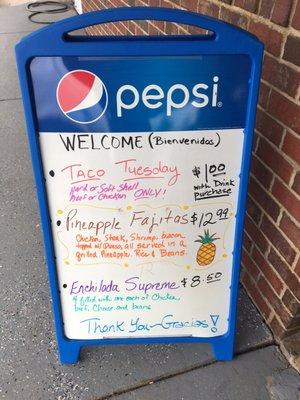 pepsi
WELCOME (Bienvenidos)
TACO Tuesday $1.00
Hard or Soft Shell with Drink
Beef or Chicken ONLY! purchase
Pineapple Fajitas $12.99
Chicken, Steak, Shrimp, bacon
topped w/Queso, all served in a
grilled Pineapple, Rice & Beans.
Enchilada Supreme $8.50
4 filled with one each of Chicken,
beef, Cheese and beans
Thank You-Gracias!